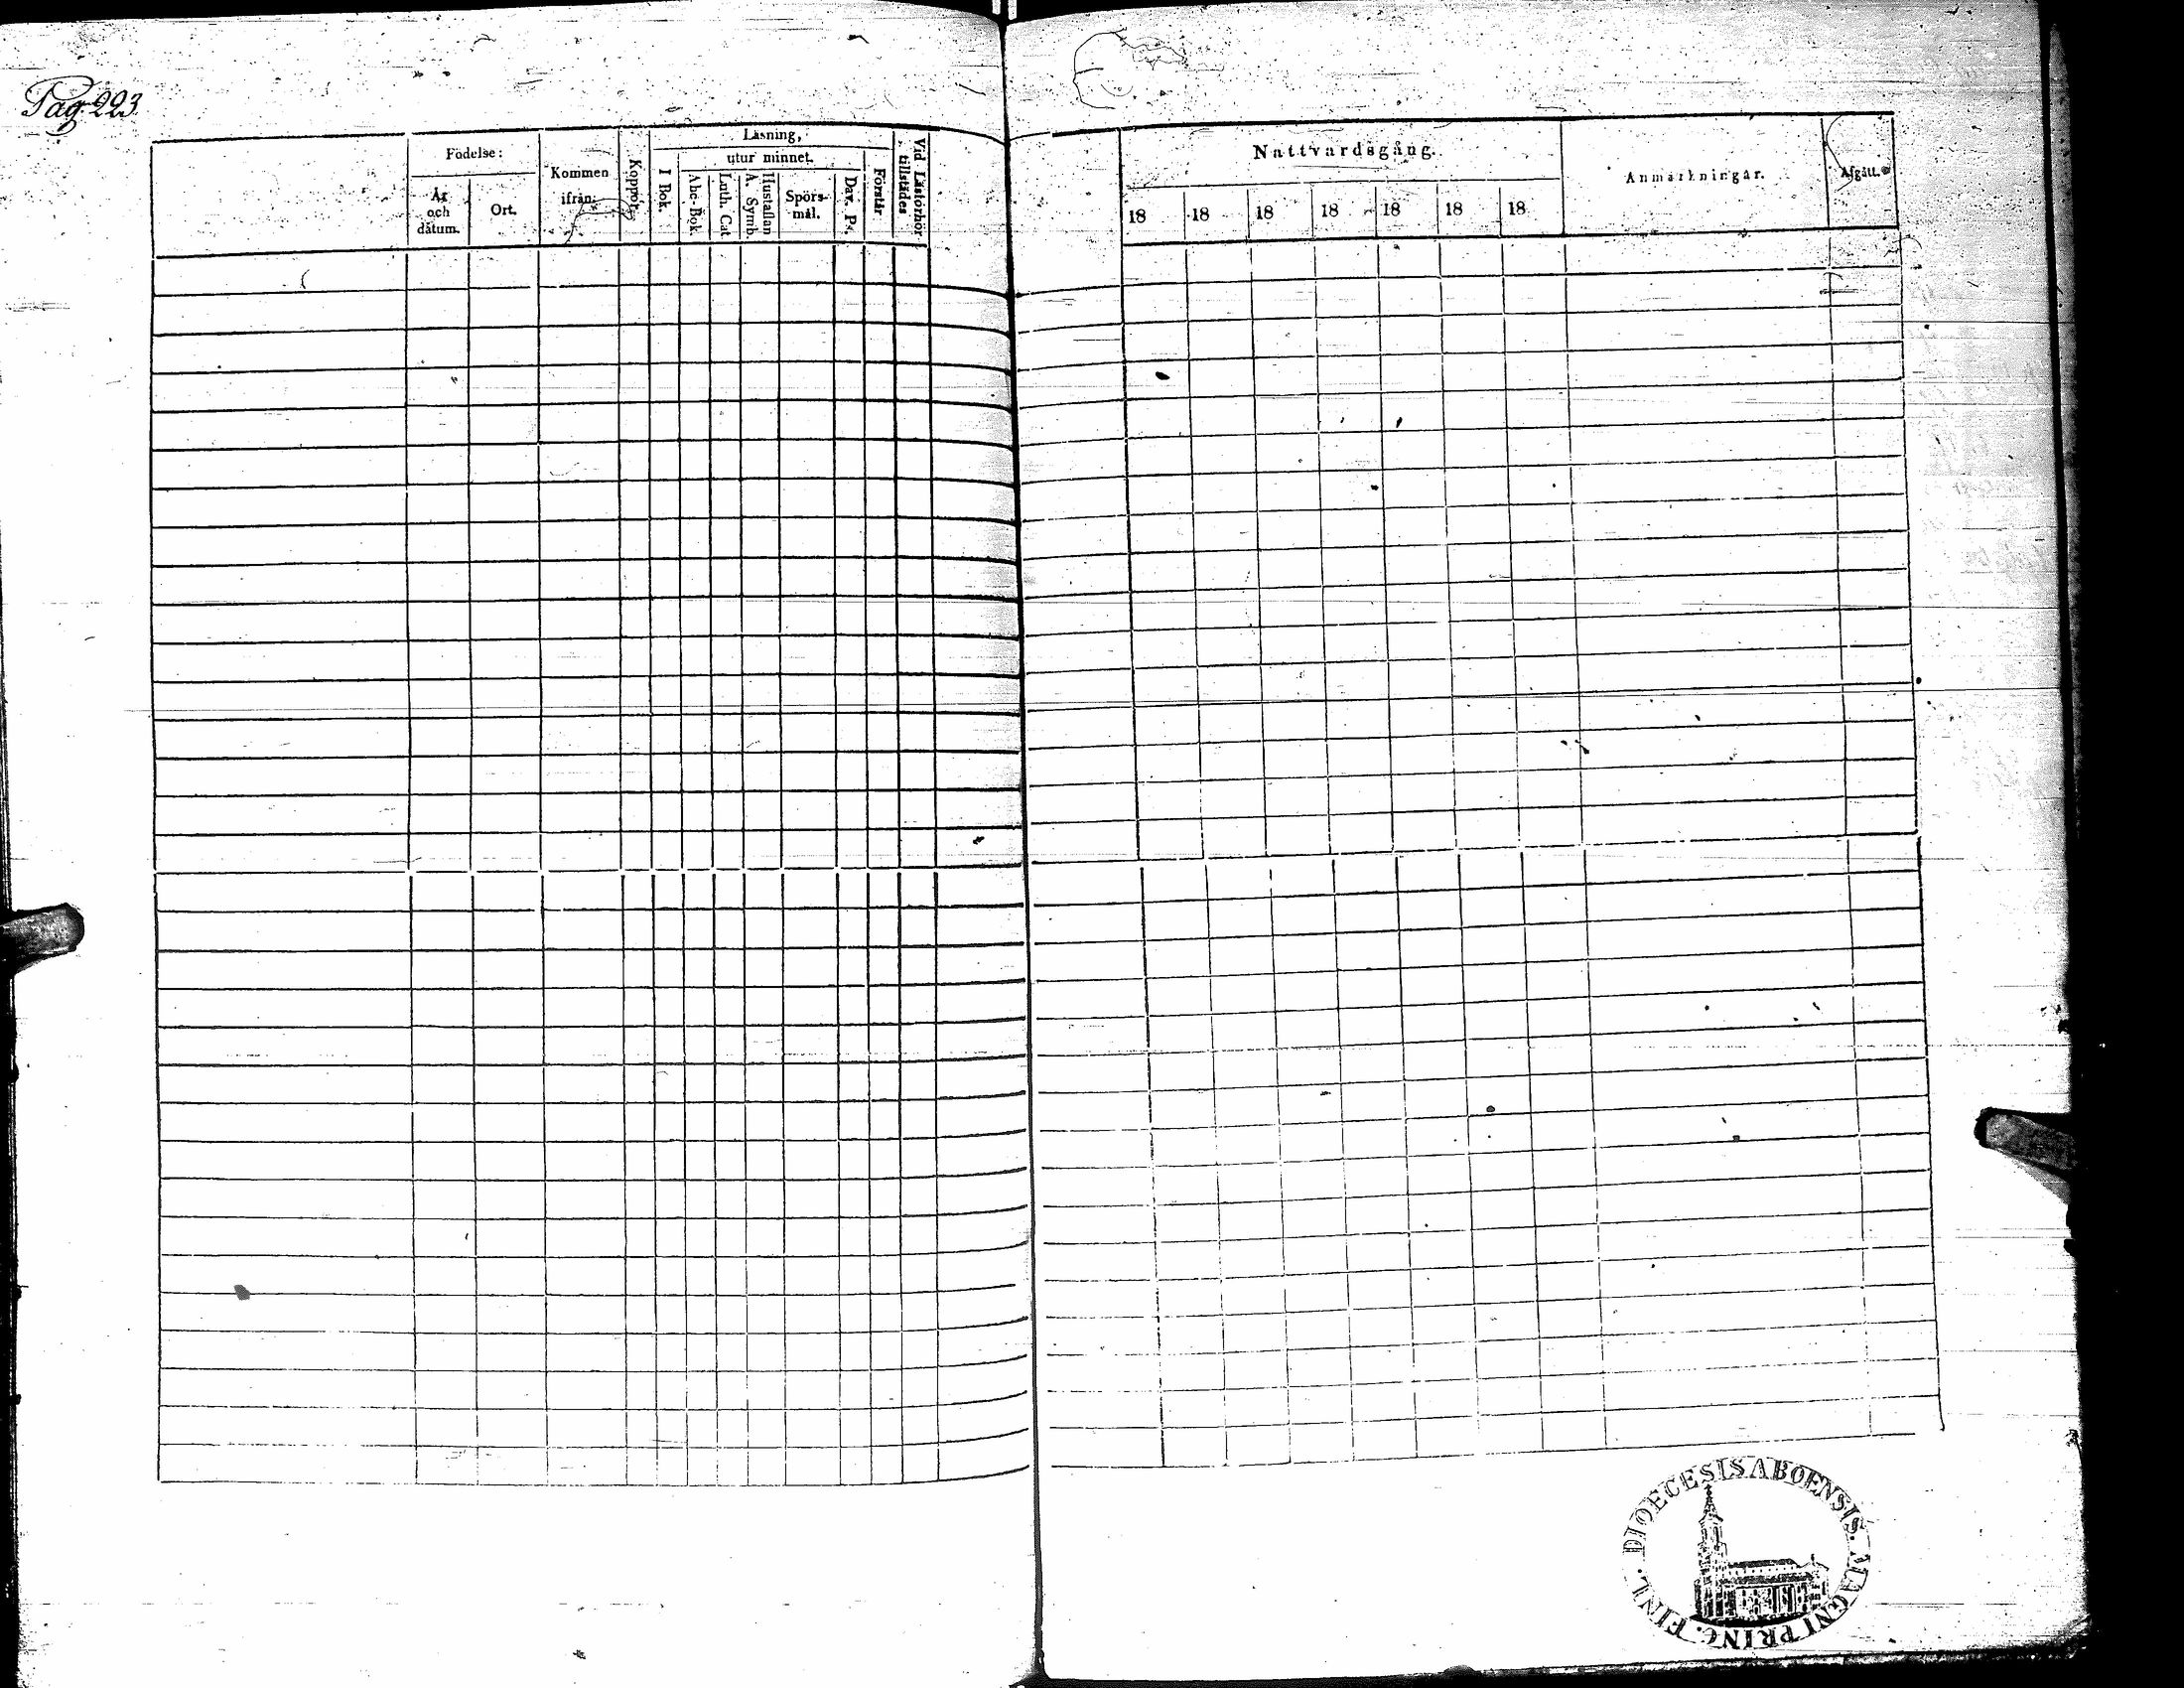 Pag. 223.
Födelse:
År
och
datum.
Ort.
Kommen
ifrån.
Koppor.
Läsning,
utur minnet.
I Bok.
Abc-Bok.
Luth. Cat.
Hustaflan
A. Symb.
Spörs-
mål.
Dav. Ps.
Förstår
Vid Läsförhör
tillstädes
Nattvardsgång.
18 18 18 18 18 18 18
Anmärkningar.
Afgått.
DIOECESIS ABOENSIS. MAGNI PRINC. FINL.